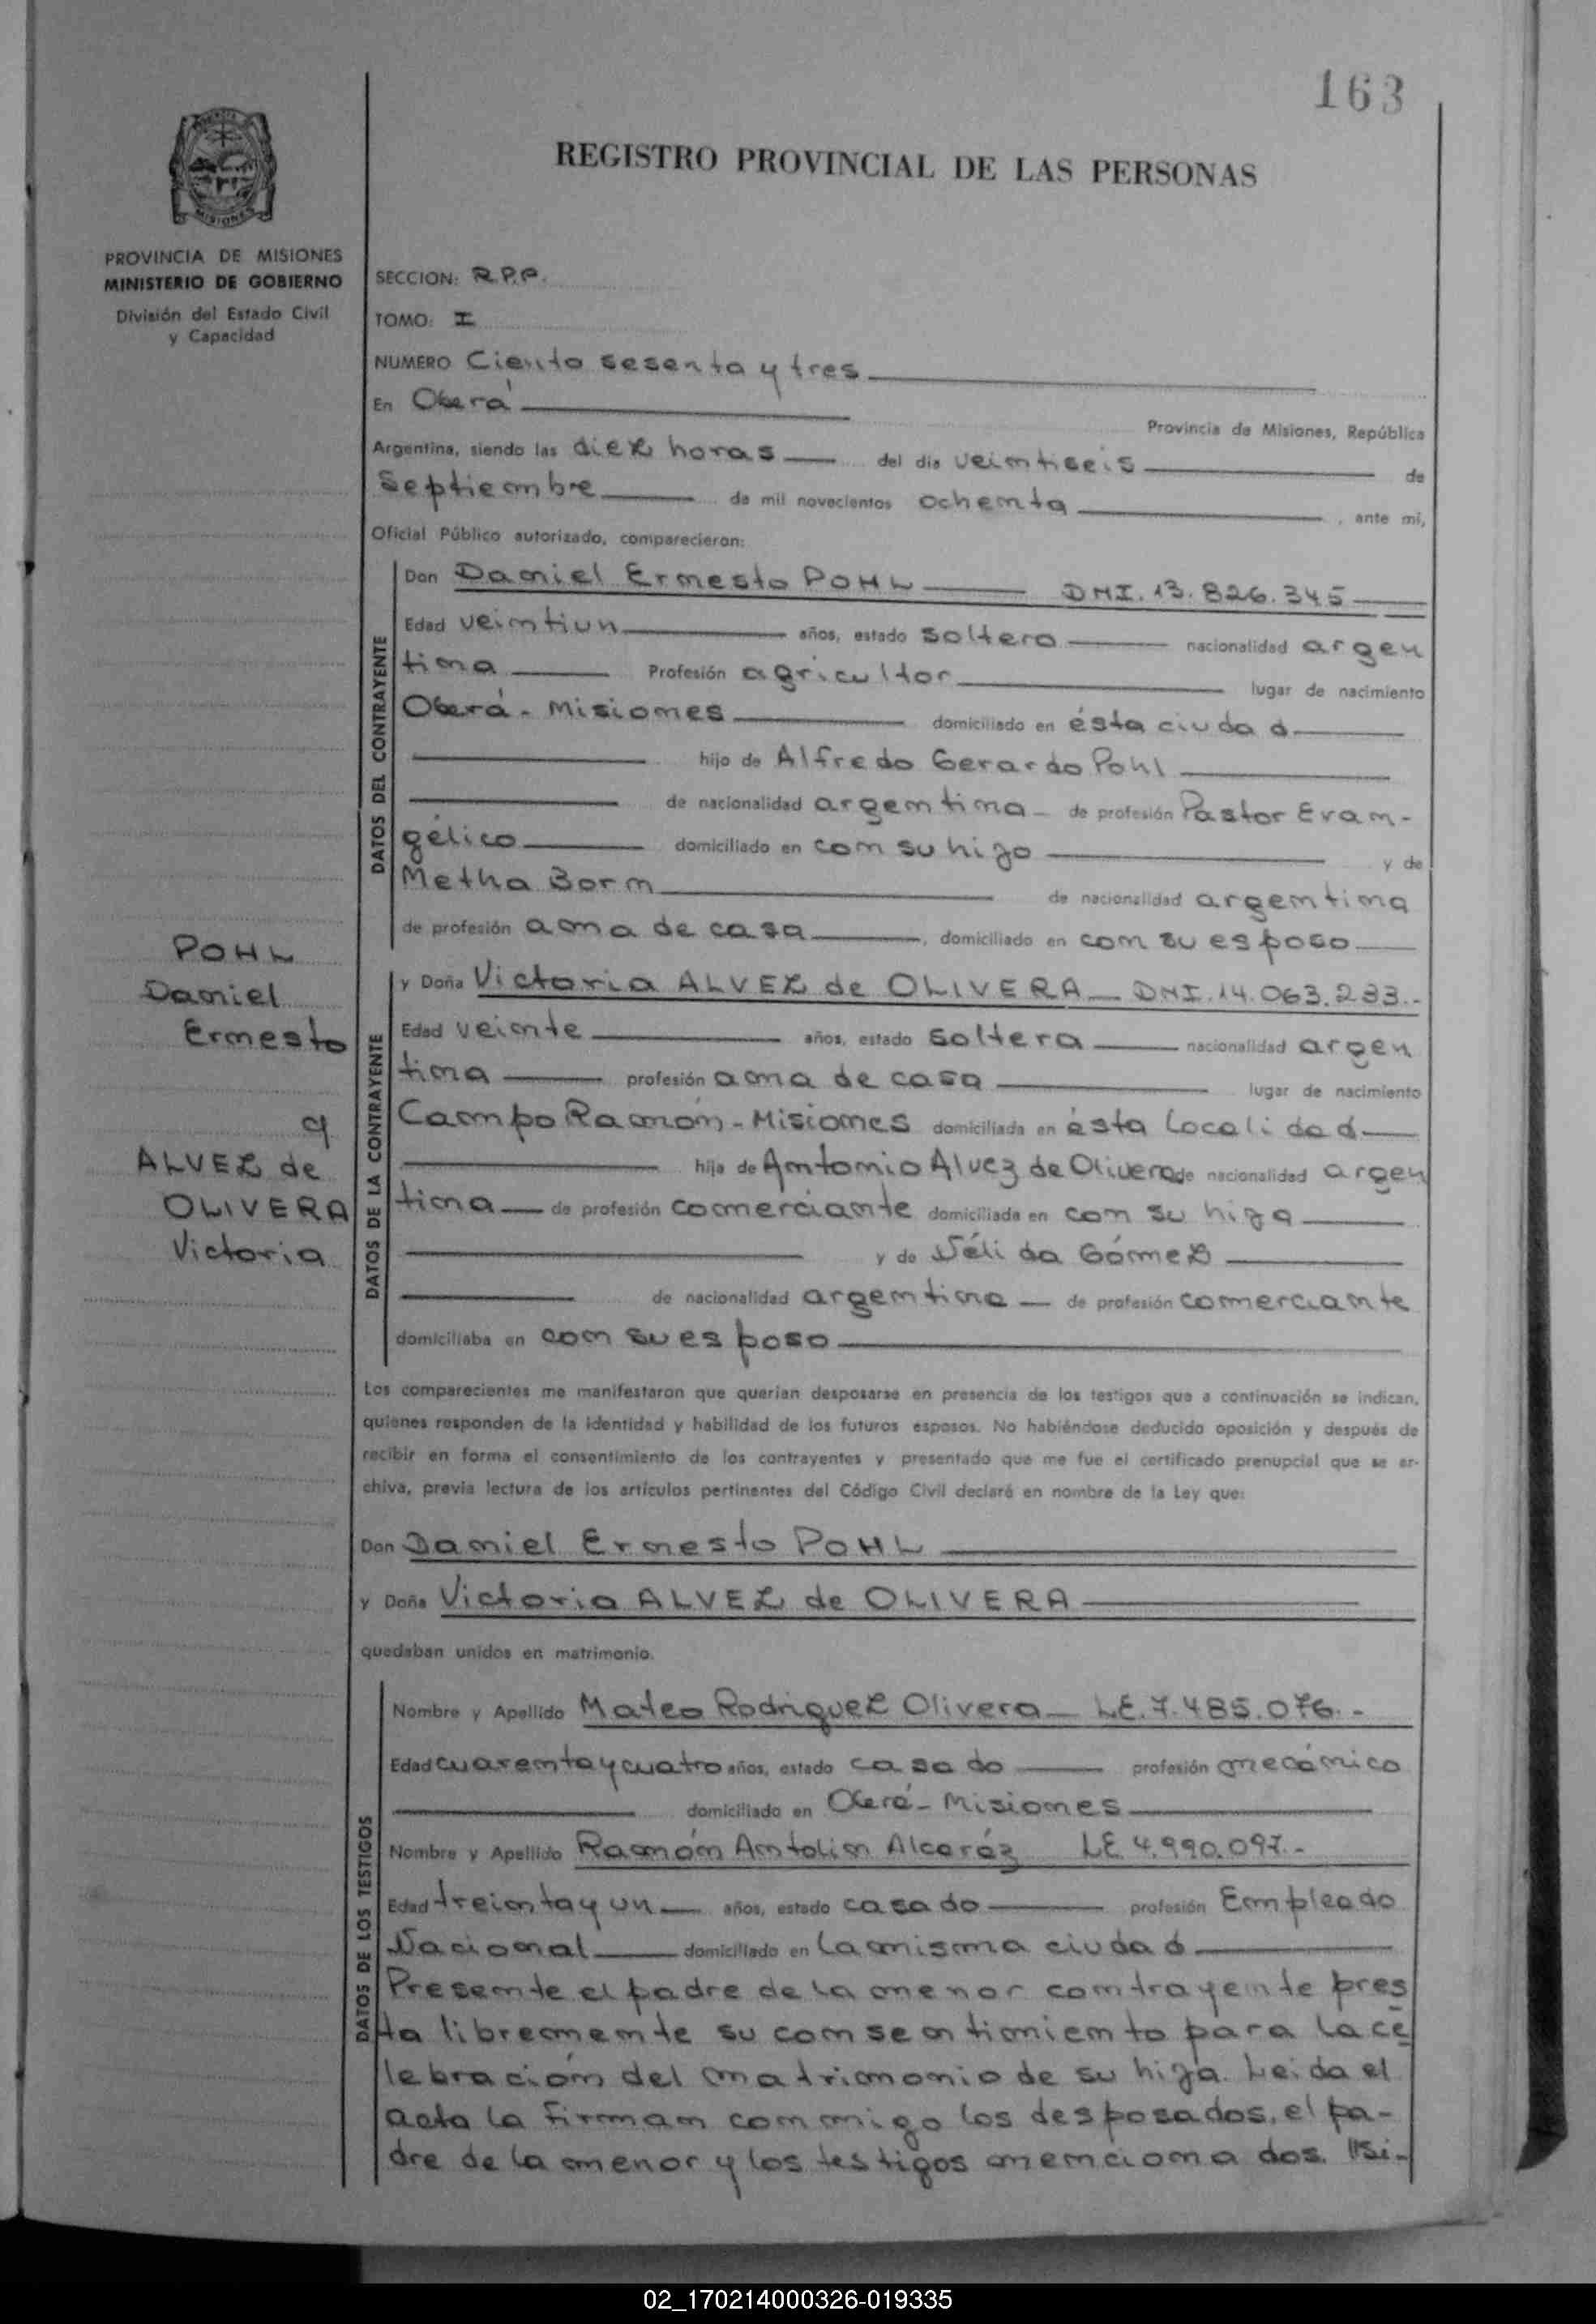 163
REGISTRO PROVINCIAL DE LAS PERSONAS
PROVINCIA DE MISIONES
MINISTERIO DE GOBIERNO
División del Estado Civil
y Capacidad
SECCION: R.P.P.
TOMO: I
NUMERO Ciento sesenta y tres
En Oberá
Provincia de Misiones, República
Argentina, siendo las diez horas del día veintiseis de
Septiembre de mil novecientos ochenta, ante mí,
Oficial Público autorizado, comparecieron:
DATOS DEL CONTRAYENTE
Don Daniel Ernesto POHL DNI. 13.826.345
Edad veintiun años, estado soltero nacionalidad argen
tina Profesión agricultor lugar de nacimiento
Oberá - Misiones domiciliado en ésta ciudad
hijo de Alfredo Gerardo Pohl
de nacionalidad argentina de profesión Pastor Evan-
gélico domiciliado en con su hijo y de
Metha Born de nacionalidad argentina
de profesión ama de casa, domiciliado en con su esposo
POHL
Daniel
Ernesto
y
ALVEZ de
OLIVERA
Victoria
DATOS DE LA CONTRAYENTE
y Doña Victoria ALVEZ de OLIVERA DNI. 14.063.233.-
Edad veinte años, estado soltera nacionalidad argen
tina profesión ama de casa lugar de nacimiento
Campo Ramón - Misiones domiciliada en ésta Localidad
hija de Antonio Alvez de Olivera de nacionalidad argen
tina de profesión comerciante domiciliada en con su hija
y de Nélida Gómez
de nacionalidad argentina de profesión comerciante
domiciliaba en con su esposo
Los comparecientes me manifestaron que querían desposarse en presencia de los testigos que a continuación se indican,
quienes responden de la identidad y habilidad de los futuros esposos. No habiéndose deducido oposición y después de
recibir en forma el consentimiento de los contrayentes y presentado que me fue el certificado prenupcial que se ar-
chiva, previa lectura de los artículos pertinentes del Código Civil declaré en nombre de la Ley que:
Don Daniel Ernesto POHL
y Doña Victoria ALVEZ de OLIVERA
quedaban unidos en matrimonio.
DATOS DE LOS TESTIGOS
Nombre y Apellido Mateo Rodriguez Olivera LE. 7.485.076.-
Edad cuarenta y cuatro años, estado casado profesión mecánico
domiciliado en Oberá - Misiones
Nombre y Apellido Ramón Antolin Alcaráz LE 4.990.097.-
Edad treinta y un años, estado casado profesión Empleado
Nacional domiciliado en la misma ciudad
Presente el padre de la menor contrayente pres
ta libremente su consentimiento para la ce
lebración del matrimonio de su hija. Leida el
acta la firman conmigo los desposados, el pa-
dre de la menor y los testigos mencionados. "Si-
02_170214000326-019335